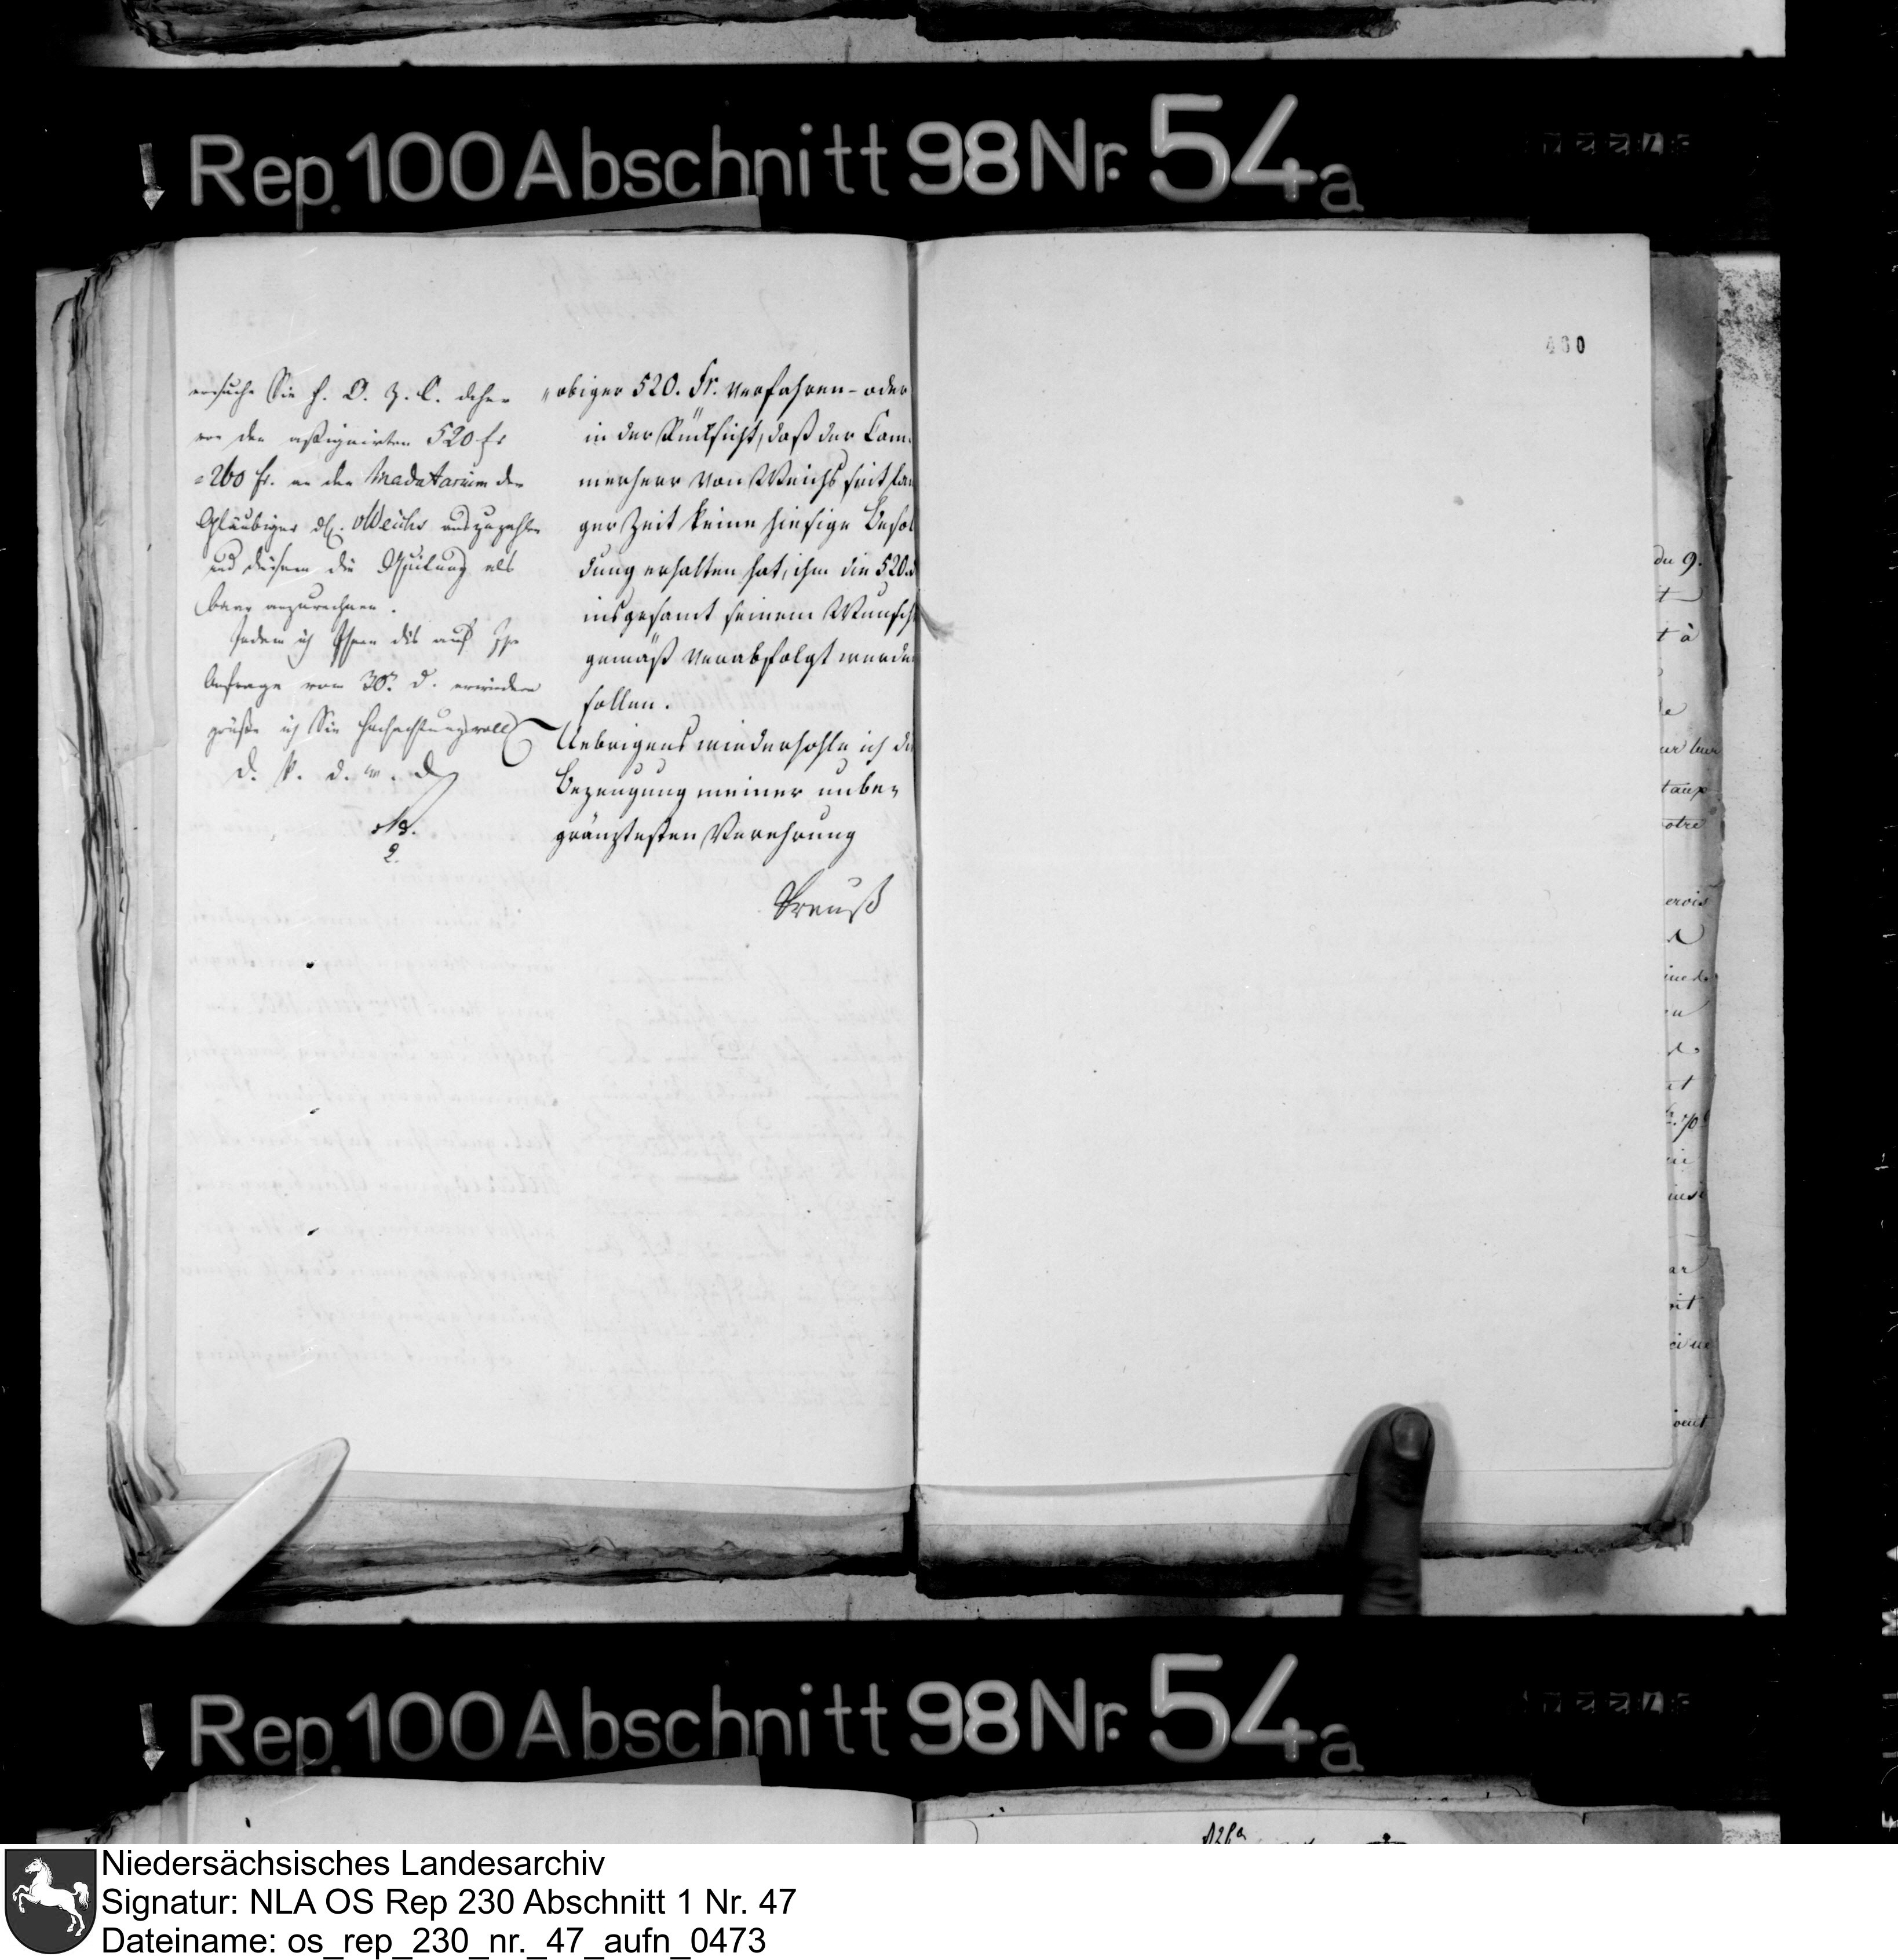 Rep. 100 Abschnitt 98 Nr. 54a
460
ersuche Sie H. O. z. C. daher
von den assignirten 520 fr
= 260 fr. an den Mandatarium der
Gläubiger des vWeichs auszuzahlen
und diesem die Quitung als
baar anzurechnen.
Indem ich Ihnen dies auf Ihre
Anfrage vom 30. d. erwiedere
grüße ich Sie Hochachtungsvoll
d. P. d. w. D
obiger 520. Fr. verfahren - oder
in der Rücksicht, daß der Cam-
merherr von Weichs seit lan
ger Zeit keine hiesige Besol
dung erhalten hat, ihm die 520.
insgesamt seinem Wunsch
gemäß verabfolgt werden
sollen.
Uebrigens wiederhohle ich die
Bezeugung meiner unbe-
gränztesten Verehrung
Preuß
du 9.
t à
taux
otre
erois
Rep. 100 Abschnitt 98 Nr. 54a
Niedersächsisches Landesarchiv
Signatur: NLA OS Rep 230 Abschnitt 1 Nr. 47
Dateiname: os_rep_230_nr._47_aufn_0473